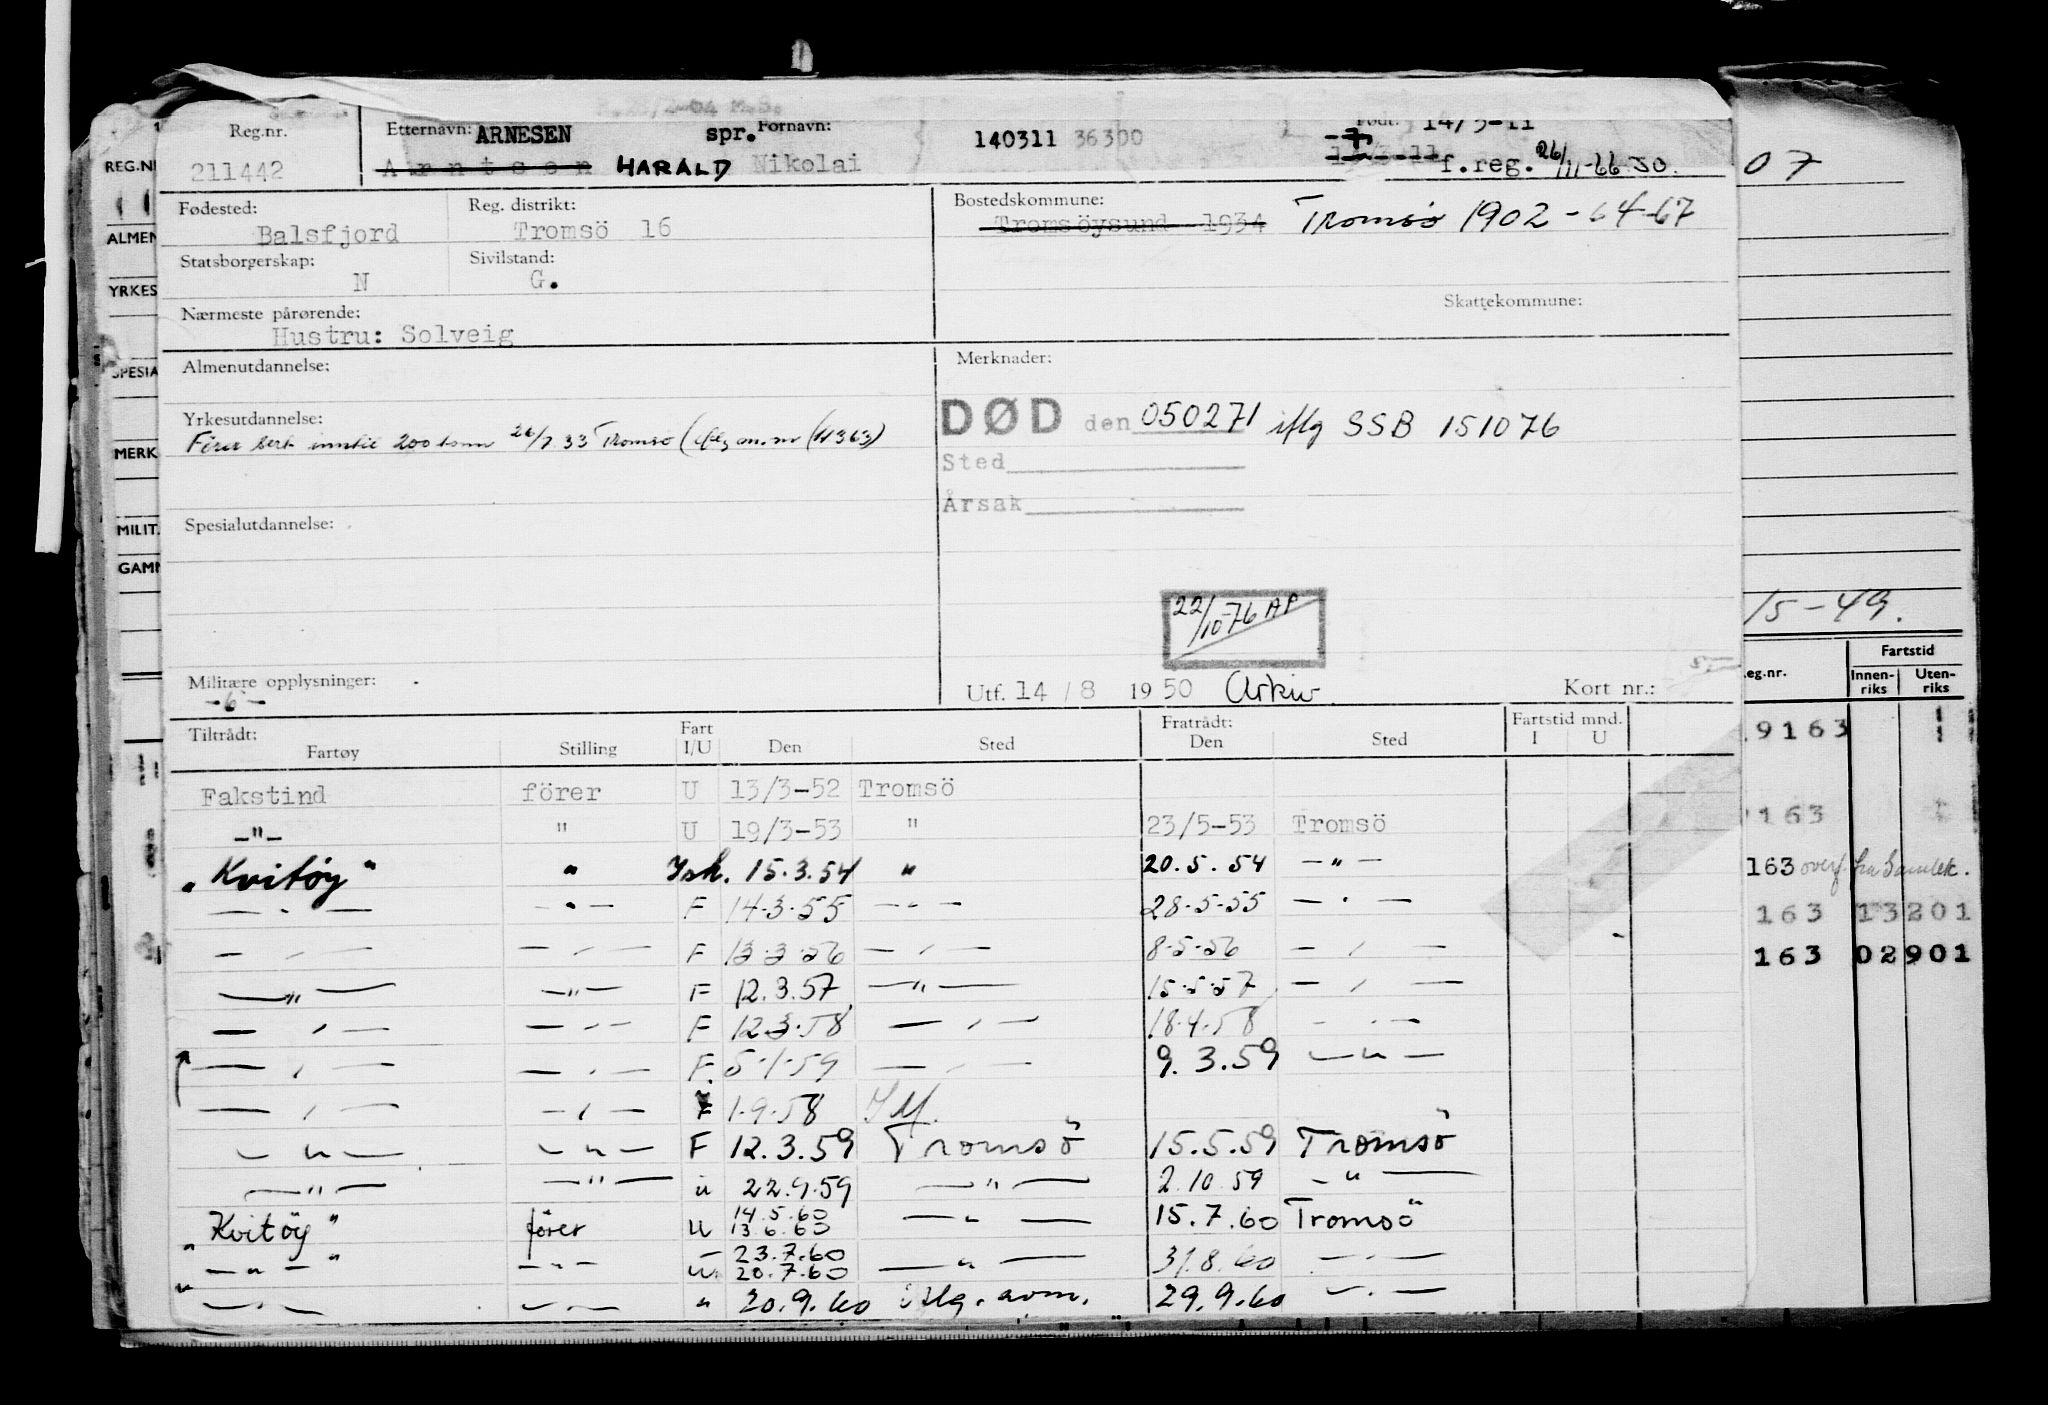 Reg.nr. Etternavn: ARNESEN spr. Fornavn: 140311 36300 Født: 14/3-11
211442 Arntsen HARALD Nikolai f.reg. 26/11-66 JO.
Fødested: Reg. distrikt: Bostedskommune:
Balsfjord Tromsö 16 Tromsöysund 1934 Tromsø 1902 - 64-67
Statsborgerskap: Sivilstand:
N G.
Skattekommune:
Nærmeste pårørende:
Hustru: Solveig
Almenutdannelse: Merknader:
Yrkesutdannelse: DØD den 050271 iflg SSB 151076
Fører sert inntil 200 tonn 26/7.33 Tromsø
Sted
Årsak
Spesialutdannelse:
22/10-76 AP
Militære opplysninger: Utf. 14 / 8 19 50 Arkiv. Kort nr.:
-6-
Tiltrådt: Fart Fratrådt: Fartstid mnd.
Fartøy Stilling I/U Den Sted Den Sted I U
Fakstind förer U 13/3-52 Tromsö
-"- " U 19/3-53 " 23/5-53 Tromsö
"Kvitøy" " Ish. 15.3.54 " 20.5.54 -"-
-"- -"- F 14.3.55 -"- 28.5.55 -"-
-"- -"- F 13.3.56 -"- 8.5.56 -"-
-"- -"- F 12.3.57 -"- 15.5.57 -"-
-"- -"- F 12.3.58 -"- 18.4.58 -"-
-"- -"- F. 5.1.59 -"- 9.3.59 -"-
-"- -"- F 1.9.58
-"- -"- F 12.3.59 Tromsö 15.5.59 Tromsö
-"- -"- u 22.9.59 -"- 2.10.59 -"-
"Kvitöy" förer U 14.5.60 13.6.60 -"- 15.7.60 Tromsö
-"- -"- u 23.7.60 20.7.60 -"- 31.8.60 -"-
-"- -"- " 20.9.60 iflg. avm. 29.9.60 -"-
REG.NR
ALMEN
YRKES
SPESIA
MERK
MILIT.
GAMM
07
15-49.
Fartstid
eg.nr. Innenriks Utenriks
9163
163
163 overf. fra Samlek.
163 13201
163 02901